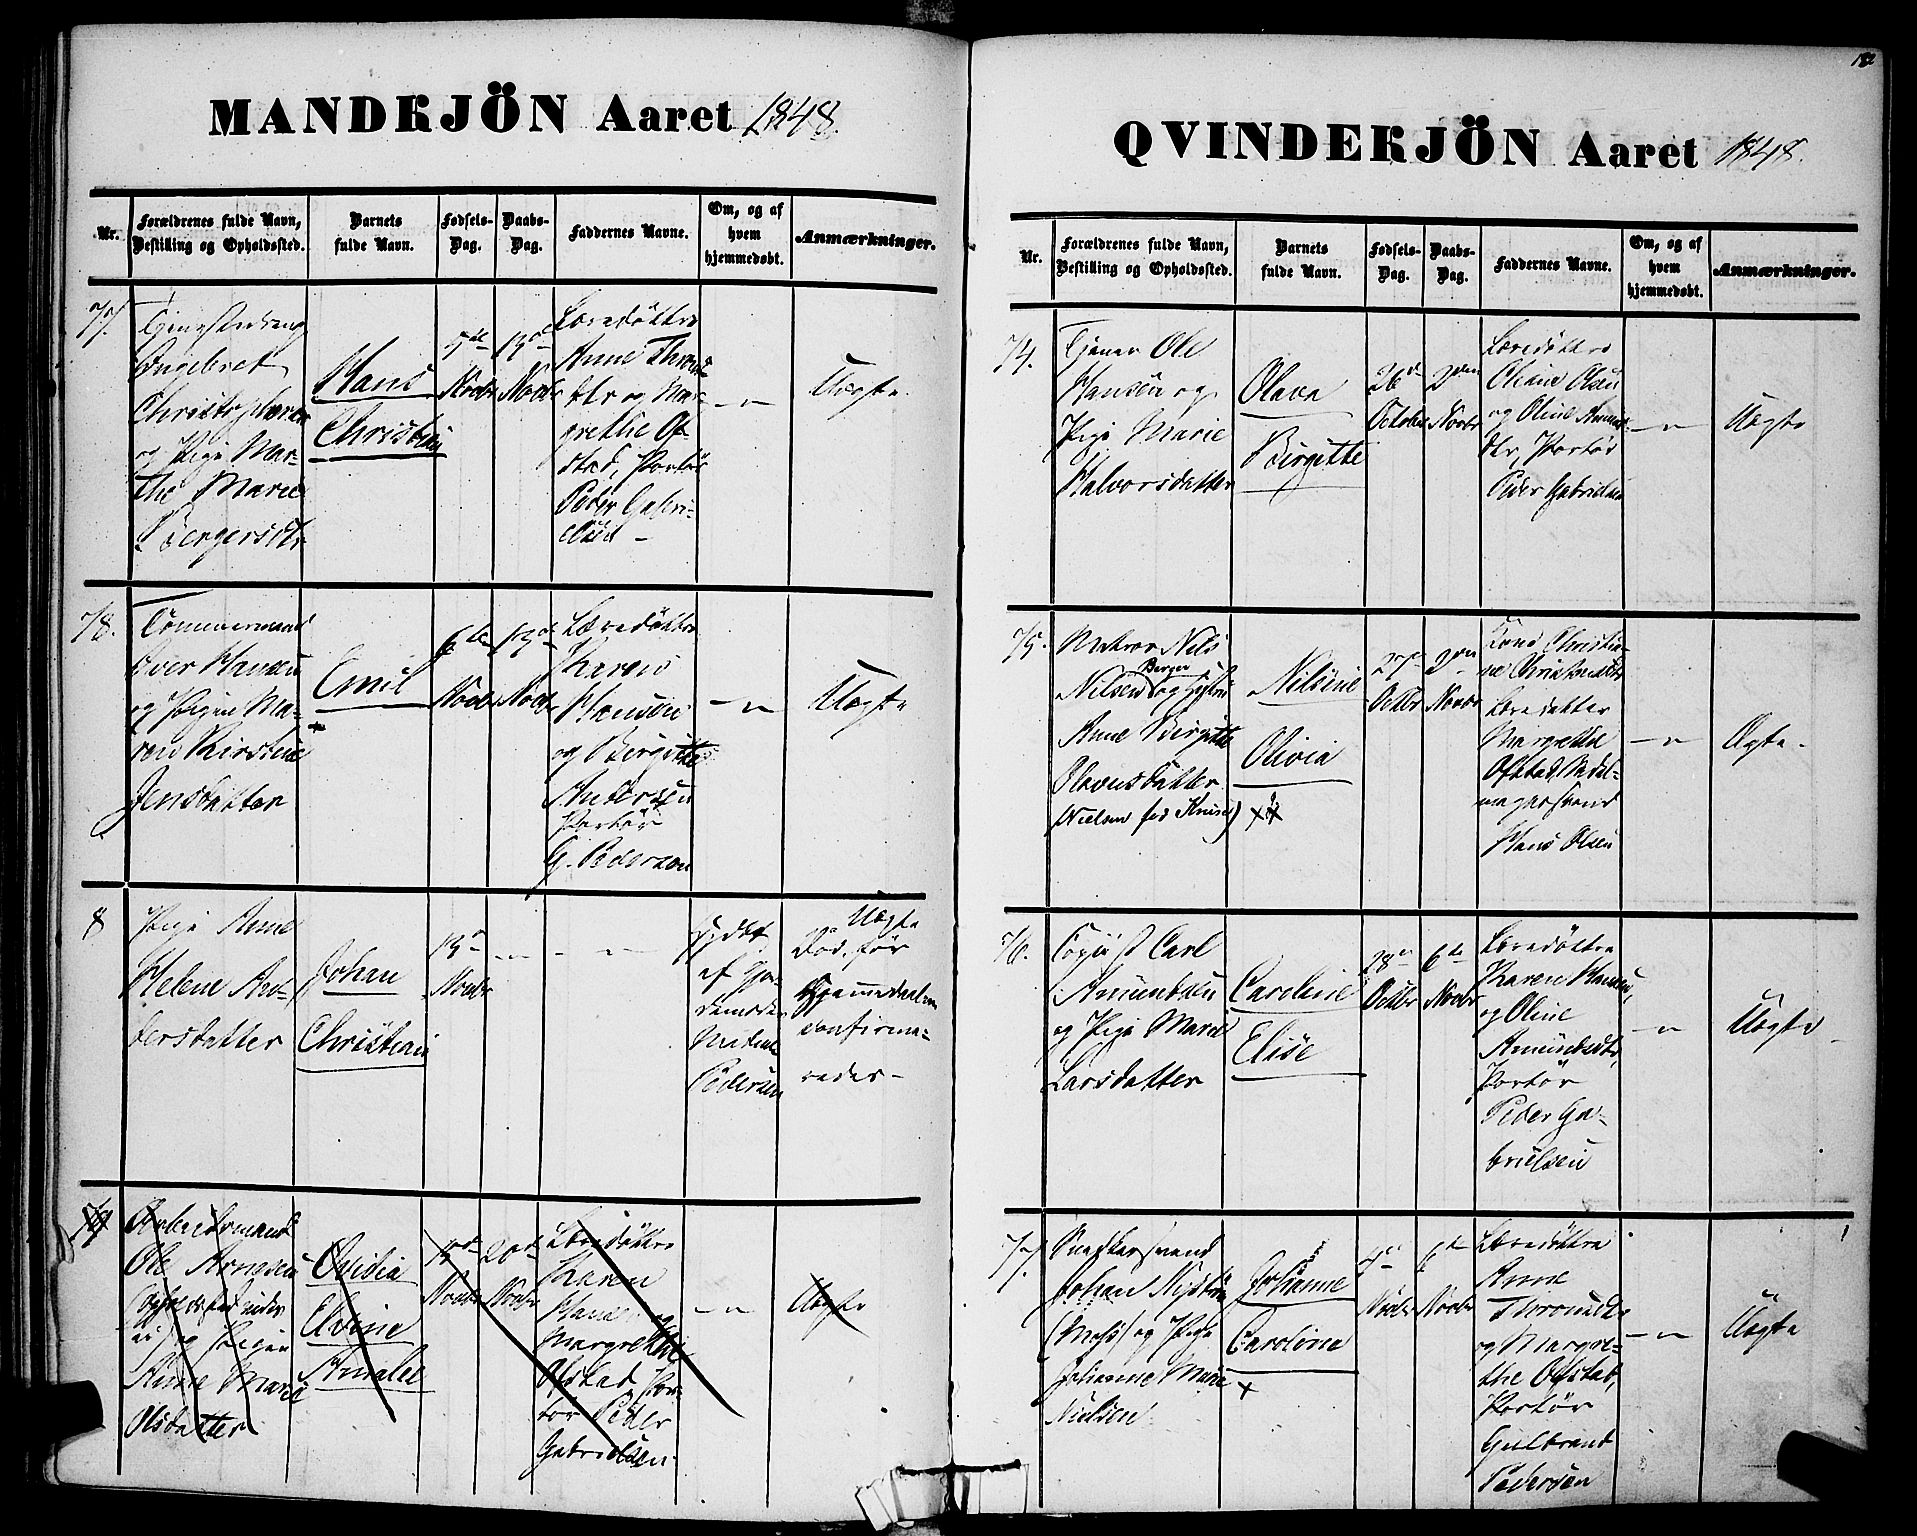 MANDKJÖN Aaret 1848.
Nr.
Forældrenes fulde Navn,
Bestilling og Opholdssted.
Barnets
fulde Navn.
Fødsels-
Dag.
Daabs-
Dag.
Faddernes Navne.
Om, og af
hvem
hjemmedøbt.
Anmærkninger.
77.
Tjenestedreng
Engebret
Christophersen
og Pige Mar-
the Marie
Børgersdtr
Hans
Christian
5de
Novbr
13de
Novbr
Læredøttre
Anne Throns-
dtr og Mar-
grethe Of-
stad, Portør
Peder Gabri-
elsen -
- " -
Uægte.
78.
Tømmermand
Iver Hansen
og Pigen Ma-
ren Kirstine
Jensdatter
Emil
+
6te
Novbr
13de
Novbr
Læredøttre
Karen
Hansen
og Birgitte
Andersen
Portør
G. Pedersen
- " -
Uægte
8
Pige Anne
Helene An-
dersdatter
Johan
Christian
13de
Novbr
- " -
- " -
Født
af Jor-
demoder
Pedersen
Uægte
Død, før
Hjemmedaaben
confirme-
redes -
79
Arbeidsmand
Ole Arnesen
og Pigen
Anne Marie
Olsdatter
Ovidia
Elvine
Amalie
12de
Novbr
20de
Novbr
Læredøttre
Karen
Hansen og
Margrethe
Ofstad, Por-
tør Peder
Gabrielsen.
- " -
Uægte
182
QVINDEKJÖN Aaret 1848.
Nr.
Forældrenes fulde Navn,
Bestilling og Opholdssted.
Barnets
fulde Navn.
Fødsels-
Dag.
Daabs-
Dag.
Faddernes Navne.
Om, og af
hvem
hjemmedøbt.
Anmærkninger.
74.
Tjener Ole
Hansen og
Pige Marie
Halvorsdatter
Olava
Birgitte
26de
October
2den
Novbr
Læredøttre
Oline Olsen
og Oline Amund-
dtr, Portør
Peder Gabrielsen
- " -
Uægte
75.
Matros Nils
Nilsen Berger og Hustru
Anne Birgitte
Olavusdatter
(Nielsen fød Knuse)
Nilsine
Olivia
27de
Octbr
2den
Novbr
Kone Christi-
ne Christensdtr
Læredatter
Margrethe
Ofstad, Nadel-
magersvend
Hans Olsen
- " -
Ægte.
76.
Logist Carl
Amundsen
og Pige Maren
Larsdatter
Caroline
Elise
28de
Octbr
6te
Novbr
Læredøttre
Karen Hansen,
og Oline
Amundsdtr,
Portør
Peder Ga-
brielsen
- " -
Uægte
77.
Snedkersvend
Johan Nyström
(Moss) og Pige
Johanne Marie
Nielsen
Johanne
Caroline
+
4de
Novbr
6te
Novbr
Læredøttre
Anne
Thronsdtr
og Margre-
the Ofstad,
Portør
Gulbrand
Pedersen
- " -
Uægte